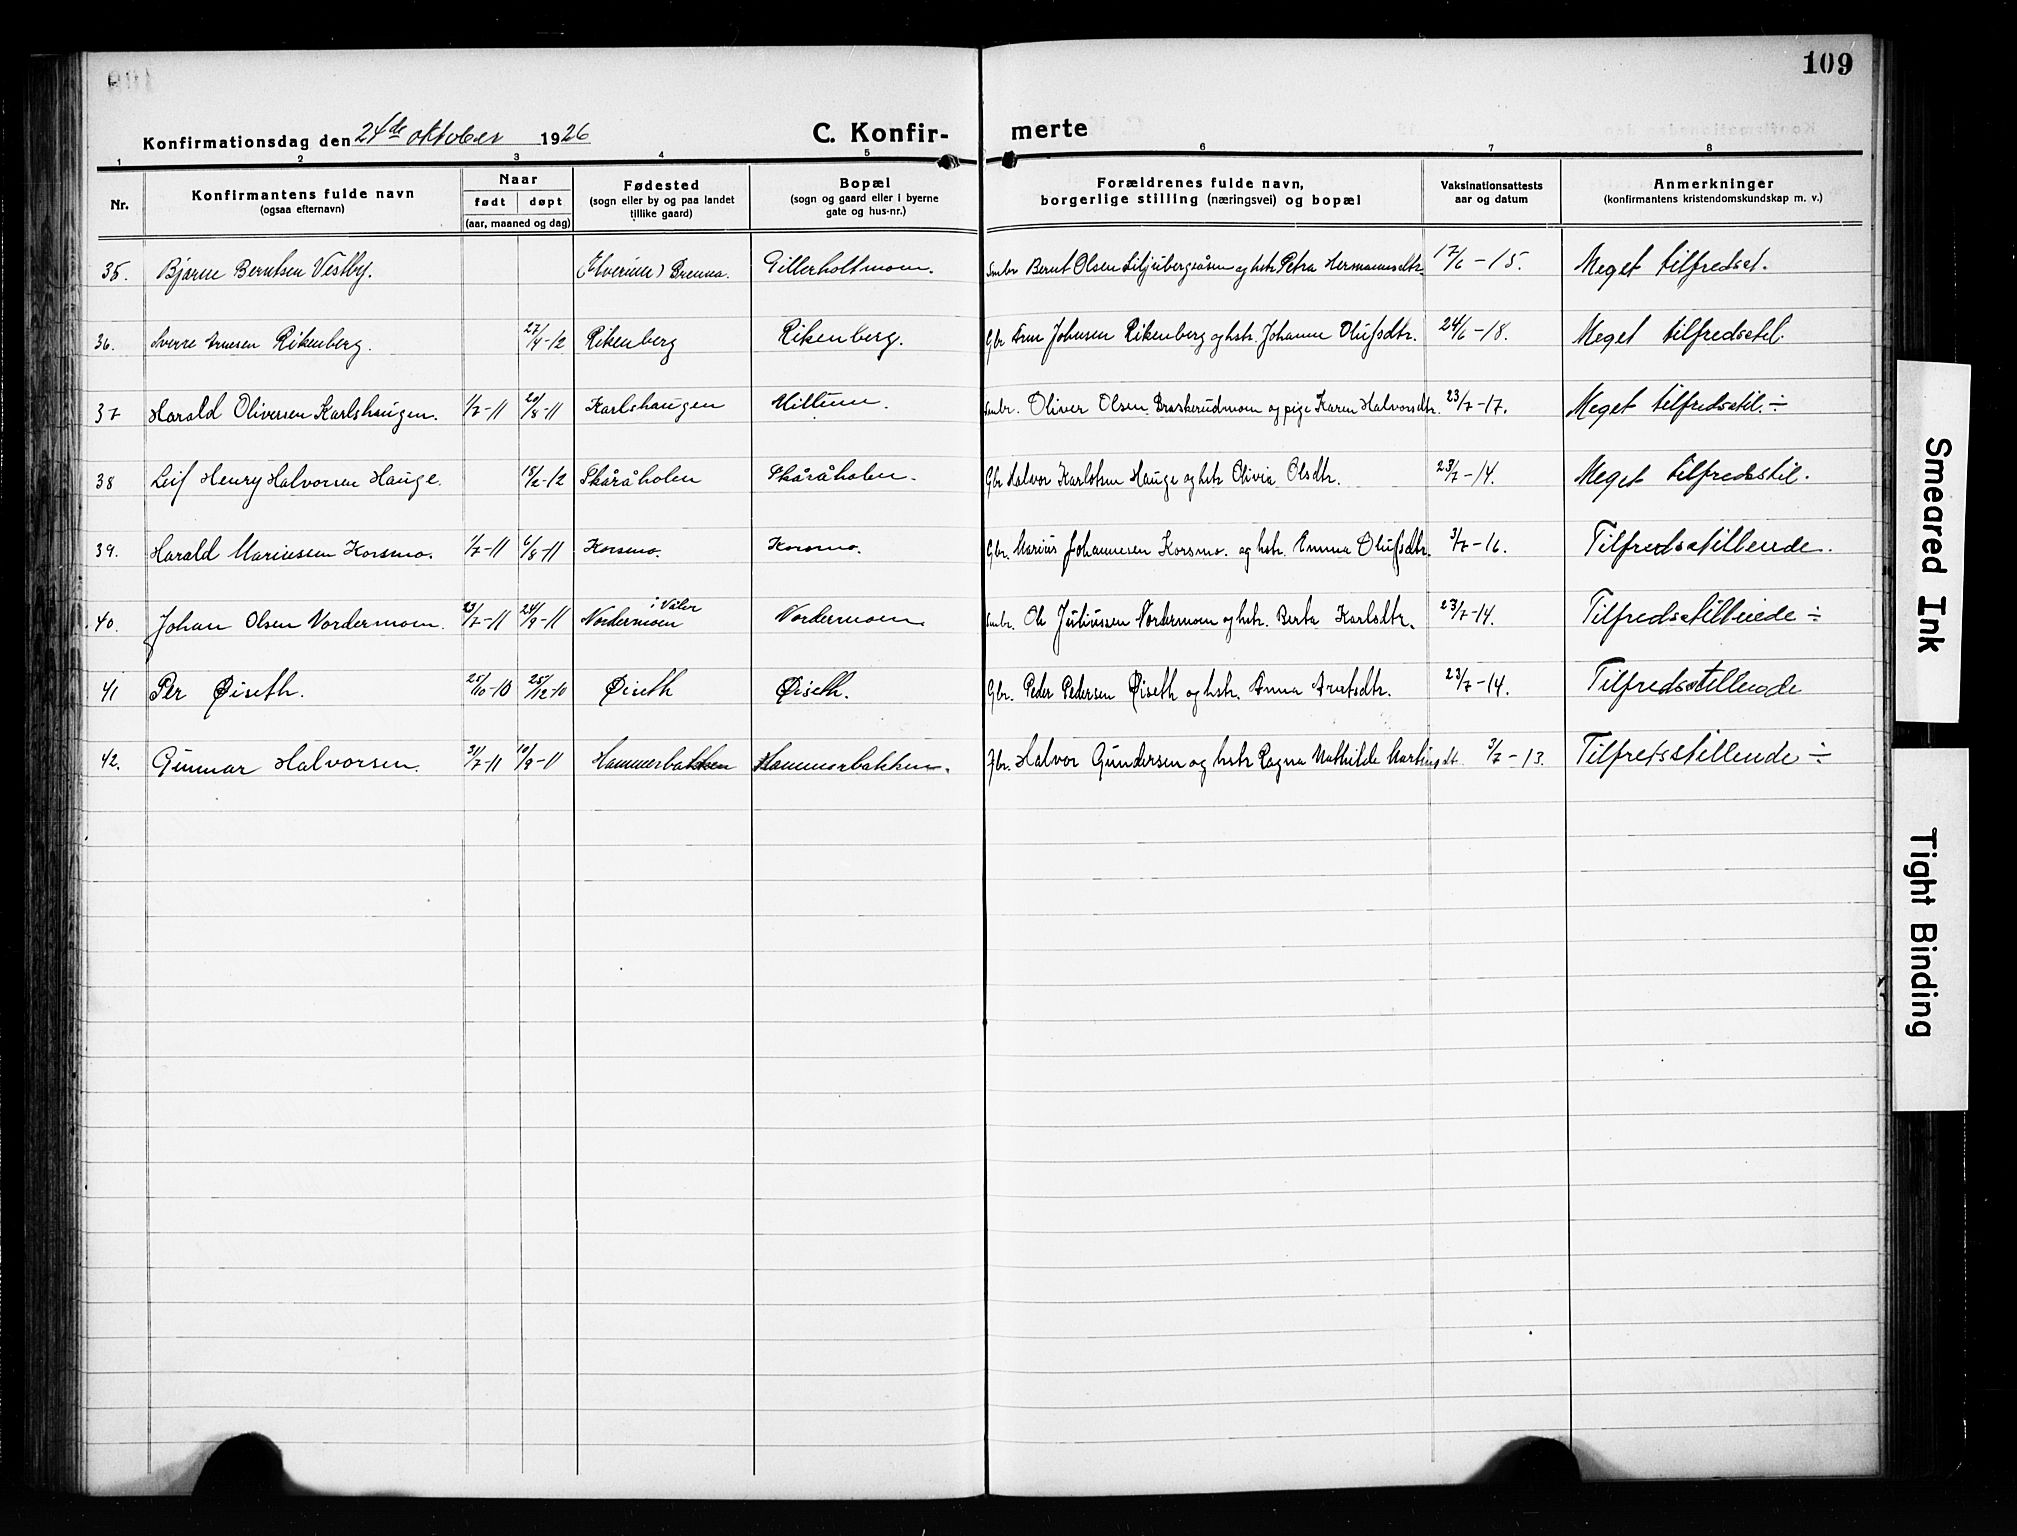 109
Konfirmationsdag den 24de oktober 1926 C. Konfirmerte
1 2 3 4 5 6 7 8
Nr. Konfirmantens fulde navn (ogsaa efternavn) Naar født døpt (aar, maaned og dag) Fødested (sogn eller by og paa landet tillike gaard) Bopæl (sogn og gaard eller i byerne gate og hus-nr.) Forældrenes fulde navn, borgerlige stilling (næringsvei) og bopæl Vaksinationsattests aar og datum Anmerkninger (konfirmantens kristendomskundskap m. v.)
35. Bjarne Berntsen Vestby. (Elverum) Grenna. Gillerholtmoen. Smbr Bernt Olsen og hstr Petra Hermannsdtr. 17/6 - 15. Meget tilfredsst.
36. Sverre Arnesen Rikenberg. 27/4-12 Rikenberg Rikenberg. Gbr Arne Johnsen Rikenberg og hstr. Johanne Olufsdtr. 24/6 - 18. Meget tilfredsstil.
37 Harald Oliversen Karlshaugen. 1/7-11 20/8-11 Karlshaugen Smbr. Oliver Olsen Braskerudmoen og pige Karen Halvorsdtr. 23/7 - 17. Meget tilfredsstil. ÷
38 Leif Henry Halvorsen Hauge. 18/2-12 Skåråholen Skåråholen. Gbr Halvor Karlstsen Hauge og hstr Olivia Olsdtr. 23/7 - 14. Meget tilfredsstil.
39. Harald Mariussen Korsmo. 1/7-11 6/8-11 Korsmo. Korsmo. Gbr. Marius Johannesen Korsmo. og hstr. Emma Olufsdtr. 3/7 - 16. Tilfredsstillende.
40. Johan Olsen Nordermoen. 23/7-11 24/9-11 Nordermoen i Våler Nordermoen Smbr. Ole Juliussen Nordermoen og hstr. Berta Karlsdtr. 23/7-14. Tilfredsstillende ÷
41 Per Øiseth. 25/10-10 25/12-10 Øiseth Øiseth. Gbr. Peder Pedersen Øiseth og hstr. Anna 23/7 - 14. Tilfredsstillende
42. Gunnar Halvorsen. 31/7-11 10/9-11 Hammerbakken Hammerbakken. Gbr. Halvor Gundersen og hstr Ragna Mathilde Martinsdt. 3/7 - 13. Tilfredsstillende ÷
Smeared Ink
Tight Binding